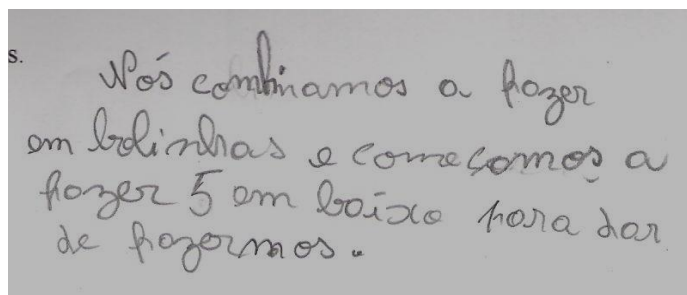 s.
Nós combinamos a fazer
em bolinhas e começamos a
fazer 5 em baixo para dar
de fazermos.